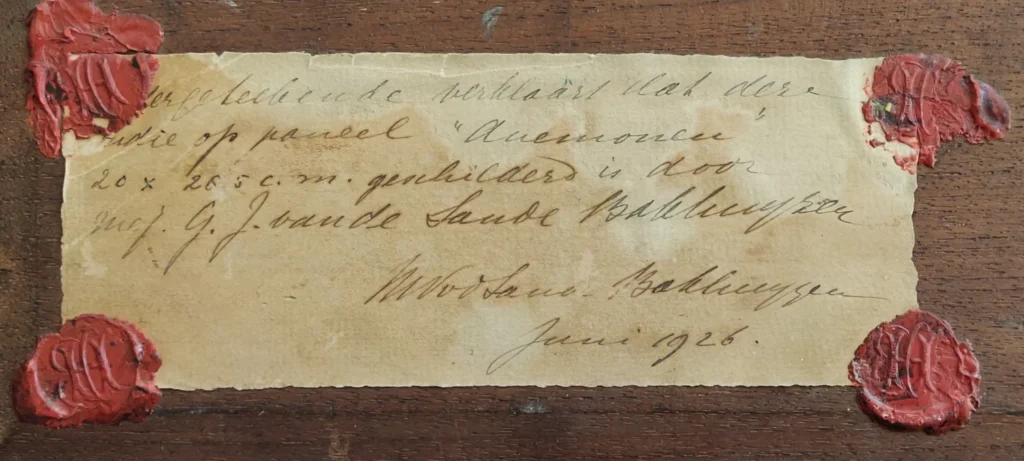 ergeteekende verklaart dat deze
studie op paneel "Anemonen"
20 x 26 5 c.m. geschilderd is door
mej. G. J. van de Sande Bakhuyzen
Bakhuyzen
Juni 1926.